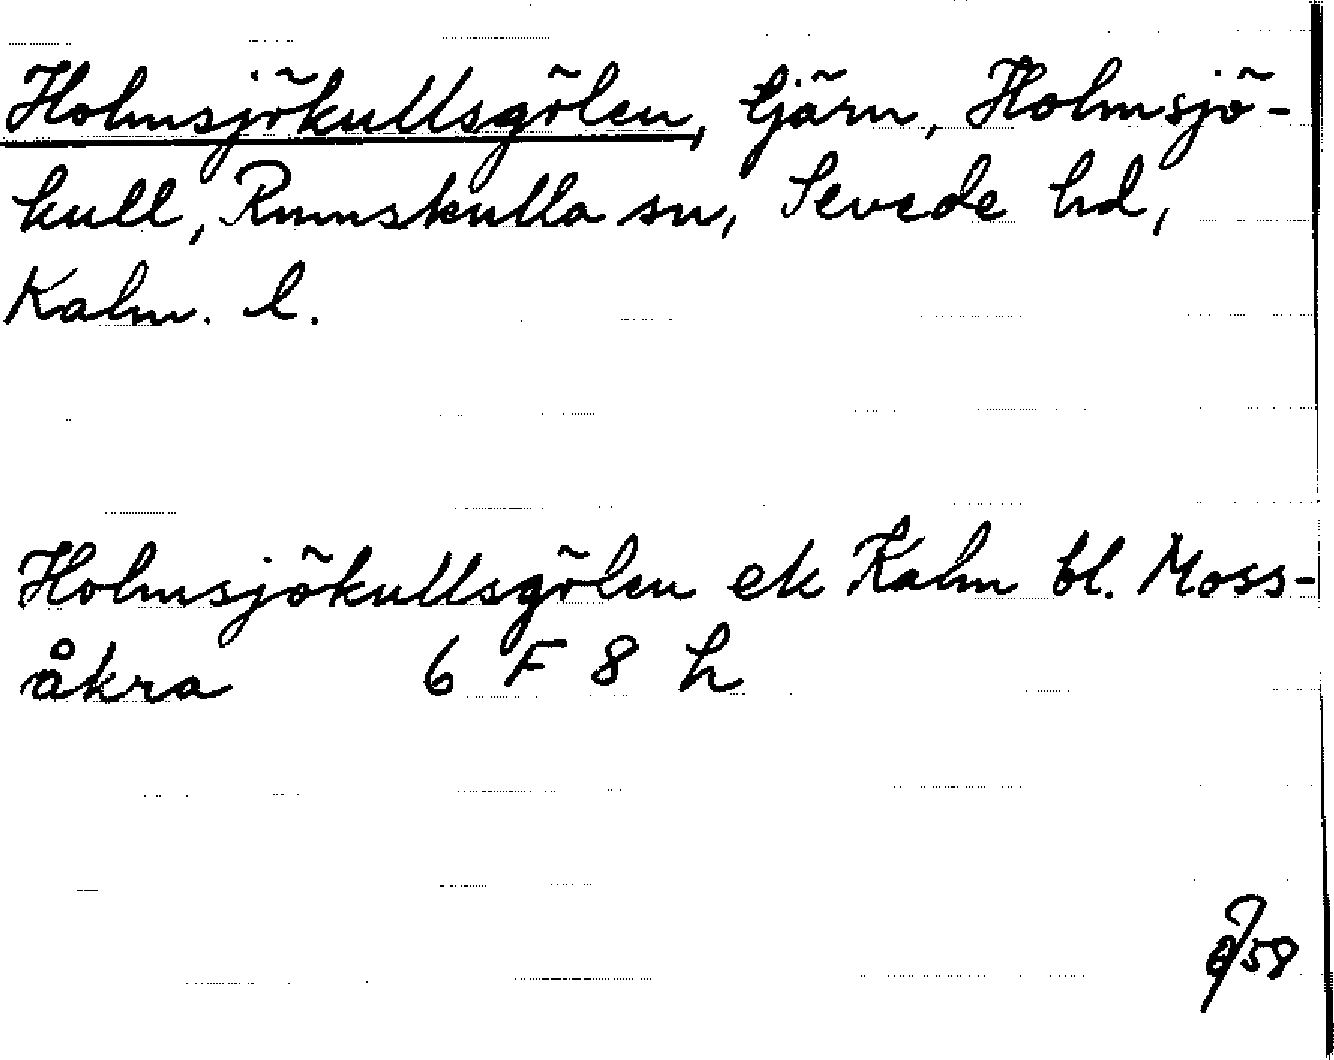 Holmsjökullsgölen, tjärn, Holmsjö-
kull, Rumskulla sn, Sevede hd,
Kalm. l.
Holmsjökullsgölen ek Kalm bl. Moss-
åkra 6 F 8 h
58